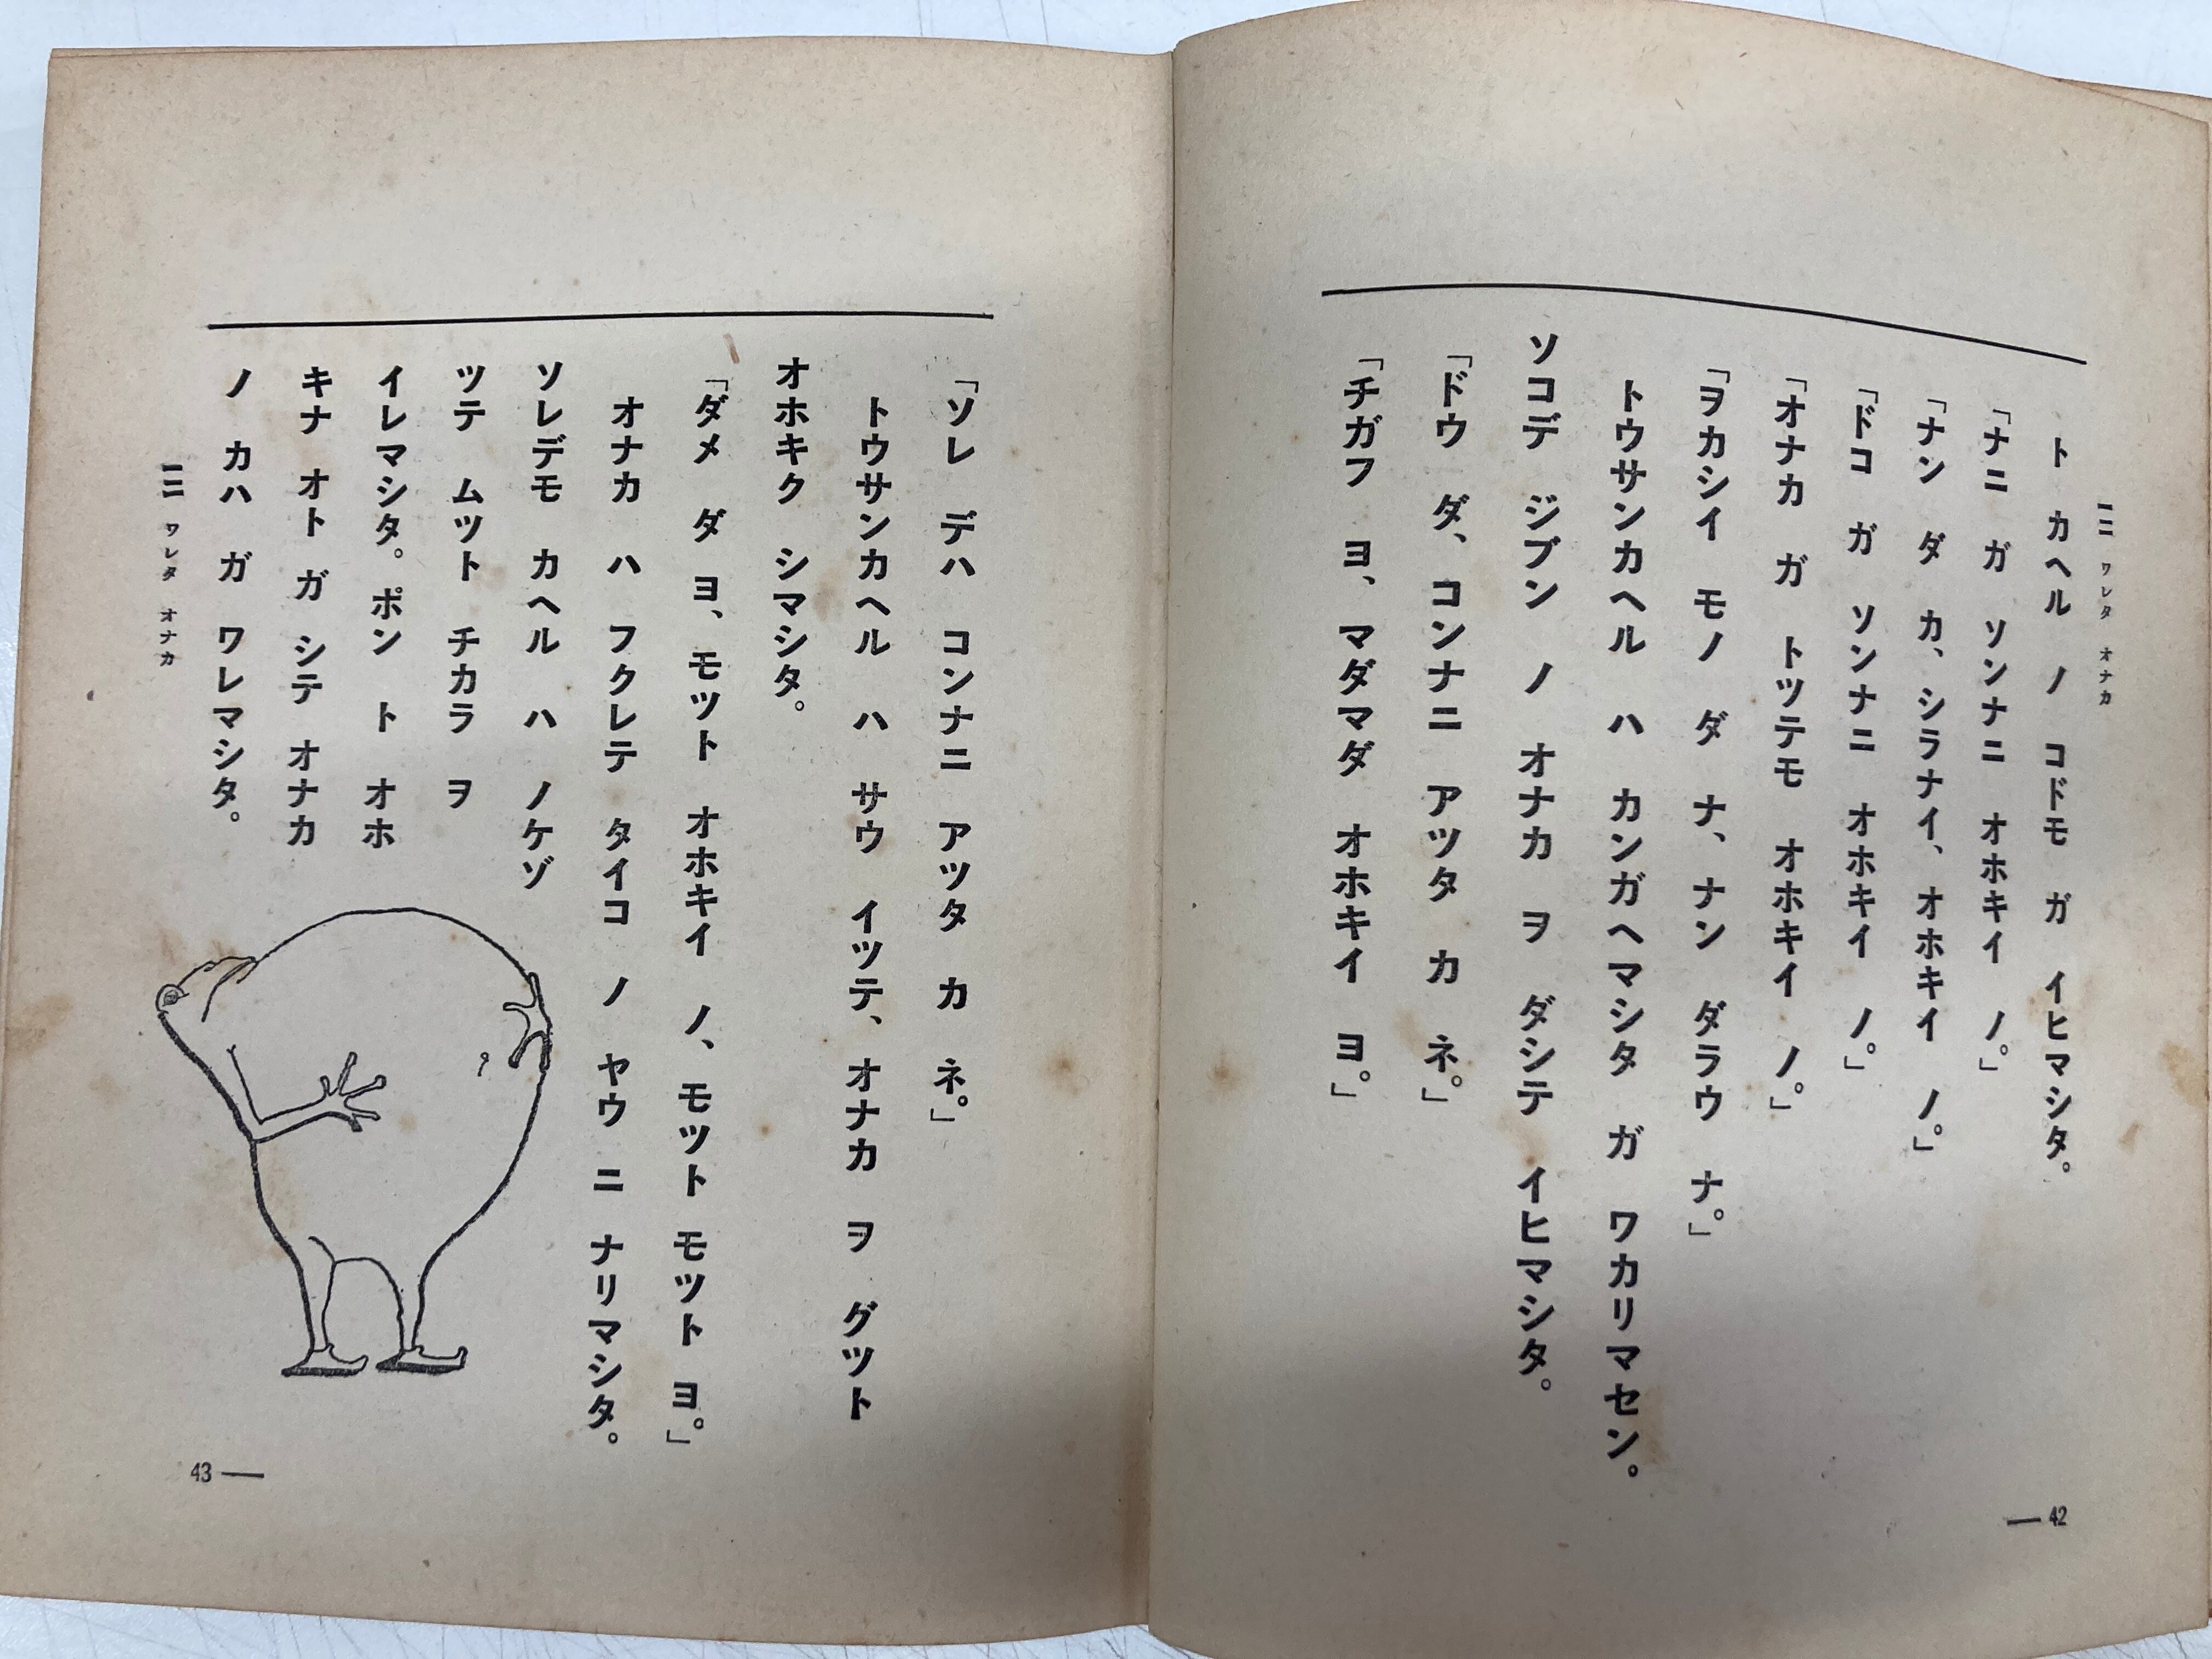 一二 ワレタ オナカ
ト カヘル ノ コドモ ガ イヒマシタ。
「ナニ ガ ソンナニ オホキイ ノ。」
「ナン ダ カ、シラナイ、オホキイ ノ。」
「ドコ ガ ソンナニ オホキイ ノ。」
「オナカ ガ トツテモ オホキイ ノ。」
「ヲカシイ モノ ダ ナ、ナン ダラウ ナ。」
トウサンカヘル ハ カンガヘマシタ ガ ワカリマセン。
ソコデ ジブン ノ オナカ ヲ ダシテ イヒマシタ。
「ドウ ダ、コンナニ アツタ カ ネ。」
「チガフ ヨ、マダマダ オホキイ ヨ。」
— 42
「ソレ デハ コンナニ アツタ カ ネ。」
トウサンカヘル ハ サウ イツテ、オナカ ヲ グツト
オホキク シマシタ。
「ダメ ダ ヨ、モツト オホキイ ノ、モツト モツト ヨ。」
オナカ ハ フクレテ タイコ ノ ヤウ ニ ナリマシタ。
ソレデモ カヘル ハ ノケゾ
ツテ ムツト チカラ ヲ
イレマシタ。ポン ト オホ
キナ オト ガ シテ オナカ
ノ カハ ガ ワレマシタ。
一二 ワレタ オナカ
43 —